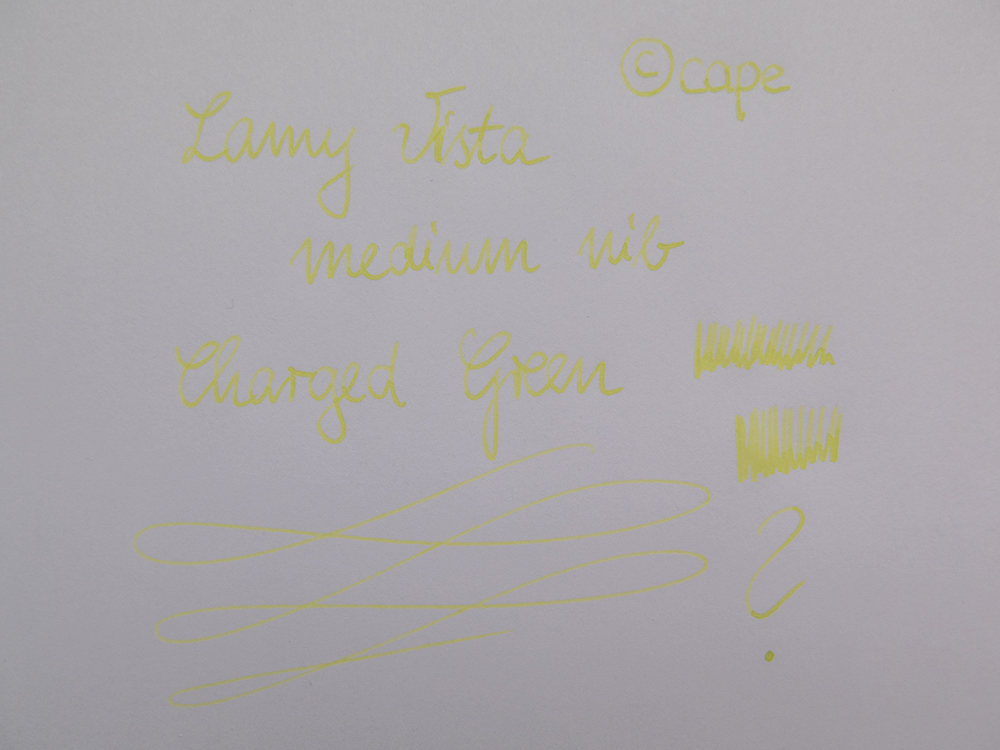 © cape
Lamy Vista
medium nib
Charged Green
?